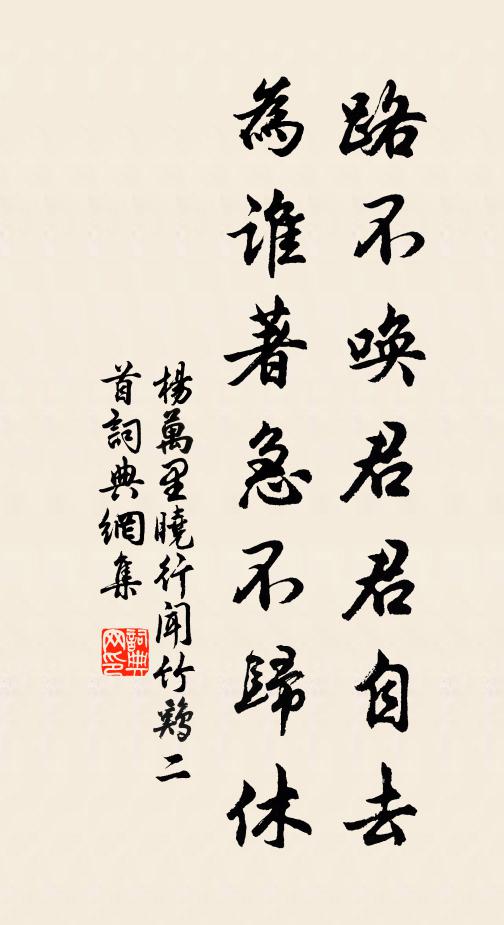 路不唤君君自去
為誰著急不歸休
楊萬里曉行聞竹鷄二
首詞典網集
詞典
网印